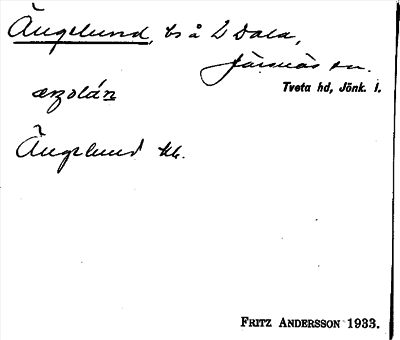 Ängelund, bs å 2 Dala,
Järsnäs sn.
Tveta hd, Jönk. l.
Ängelund
FRITZ ANDERSSON 1933.